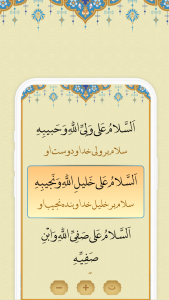 اَلسَّلامُ عَلی وَلِیِّ اللَّهِ وَحَبیبِهِ
سلام بر ولی خدا و دوست او
اَلسَّلامُ عَلی خَلیلِ اللَّهِ وَنَجیبِهِ
سلام بر خلیل خدا و بنده نجیب او
اَلسَّلامُ عَلی صَفِیِّ اللَّهِ وَابْنِ
صَفِیِّهِ